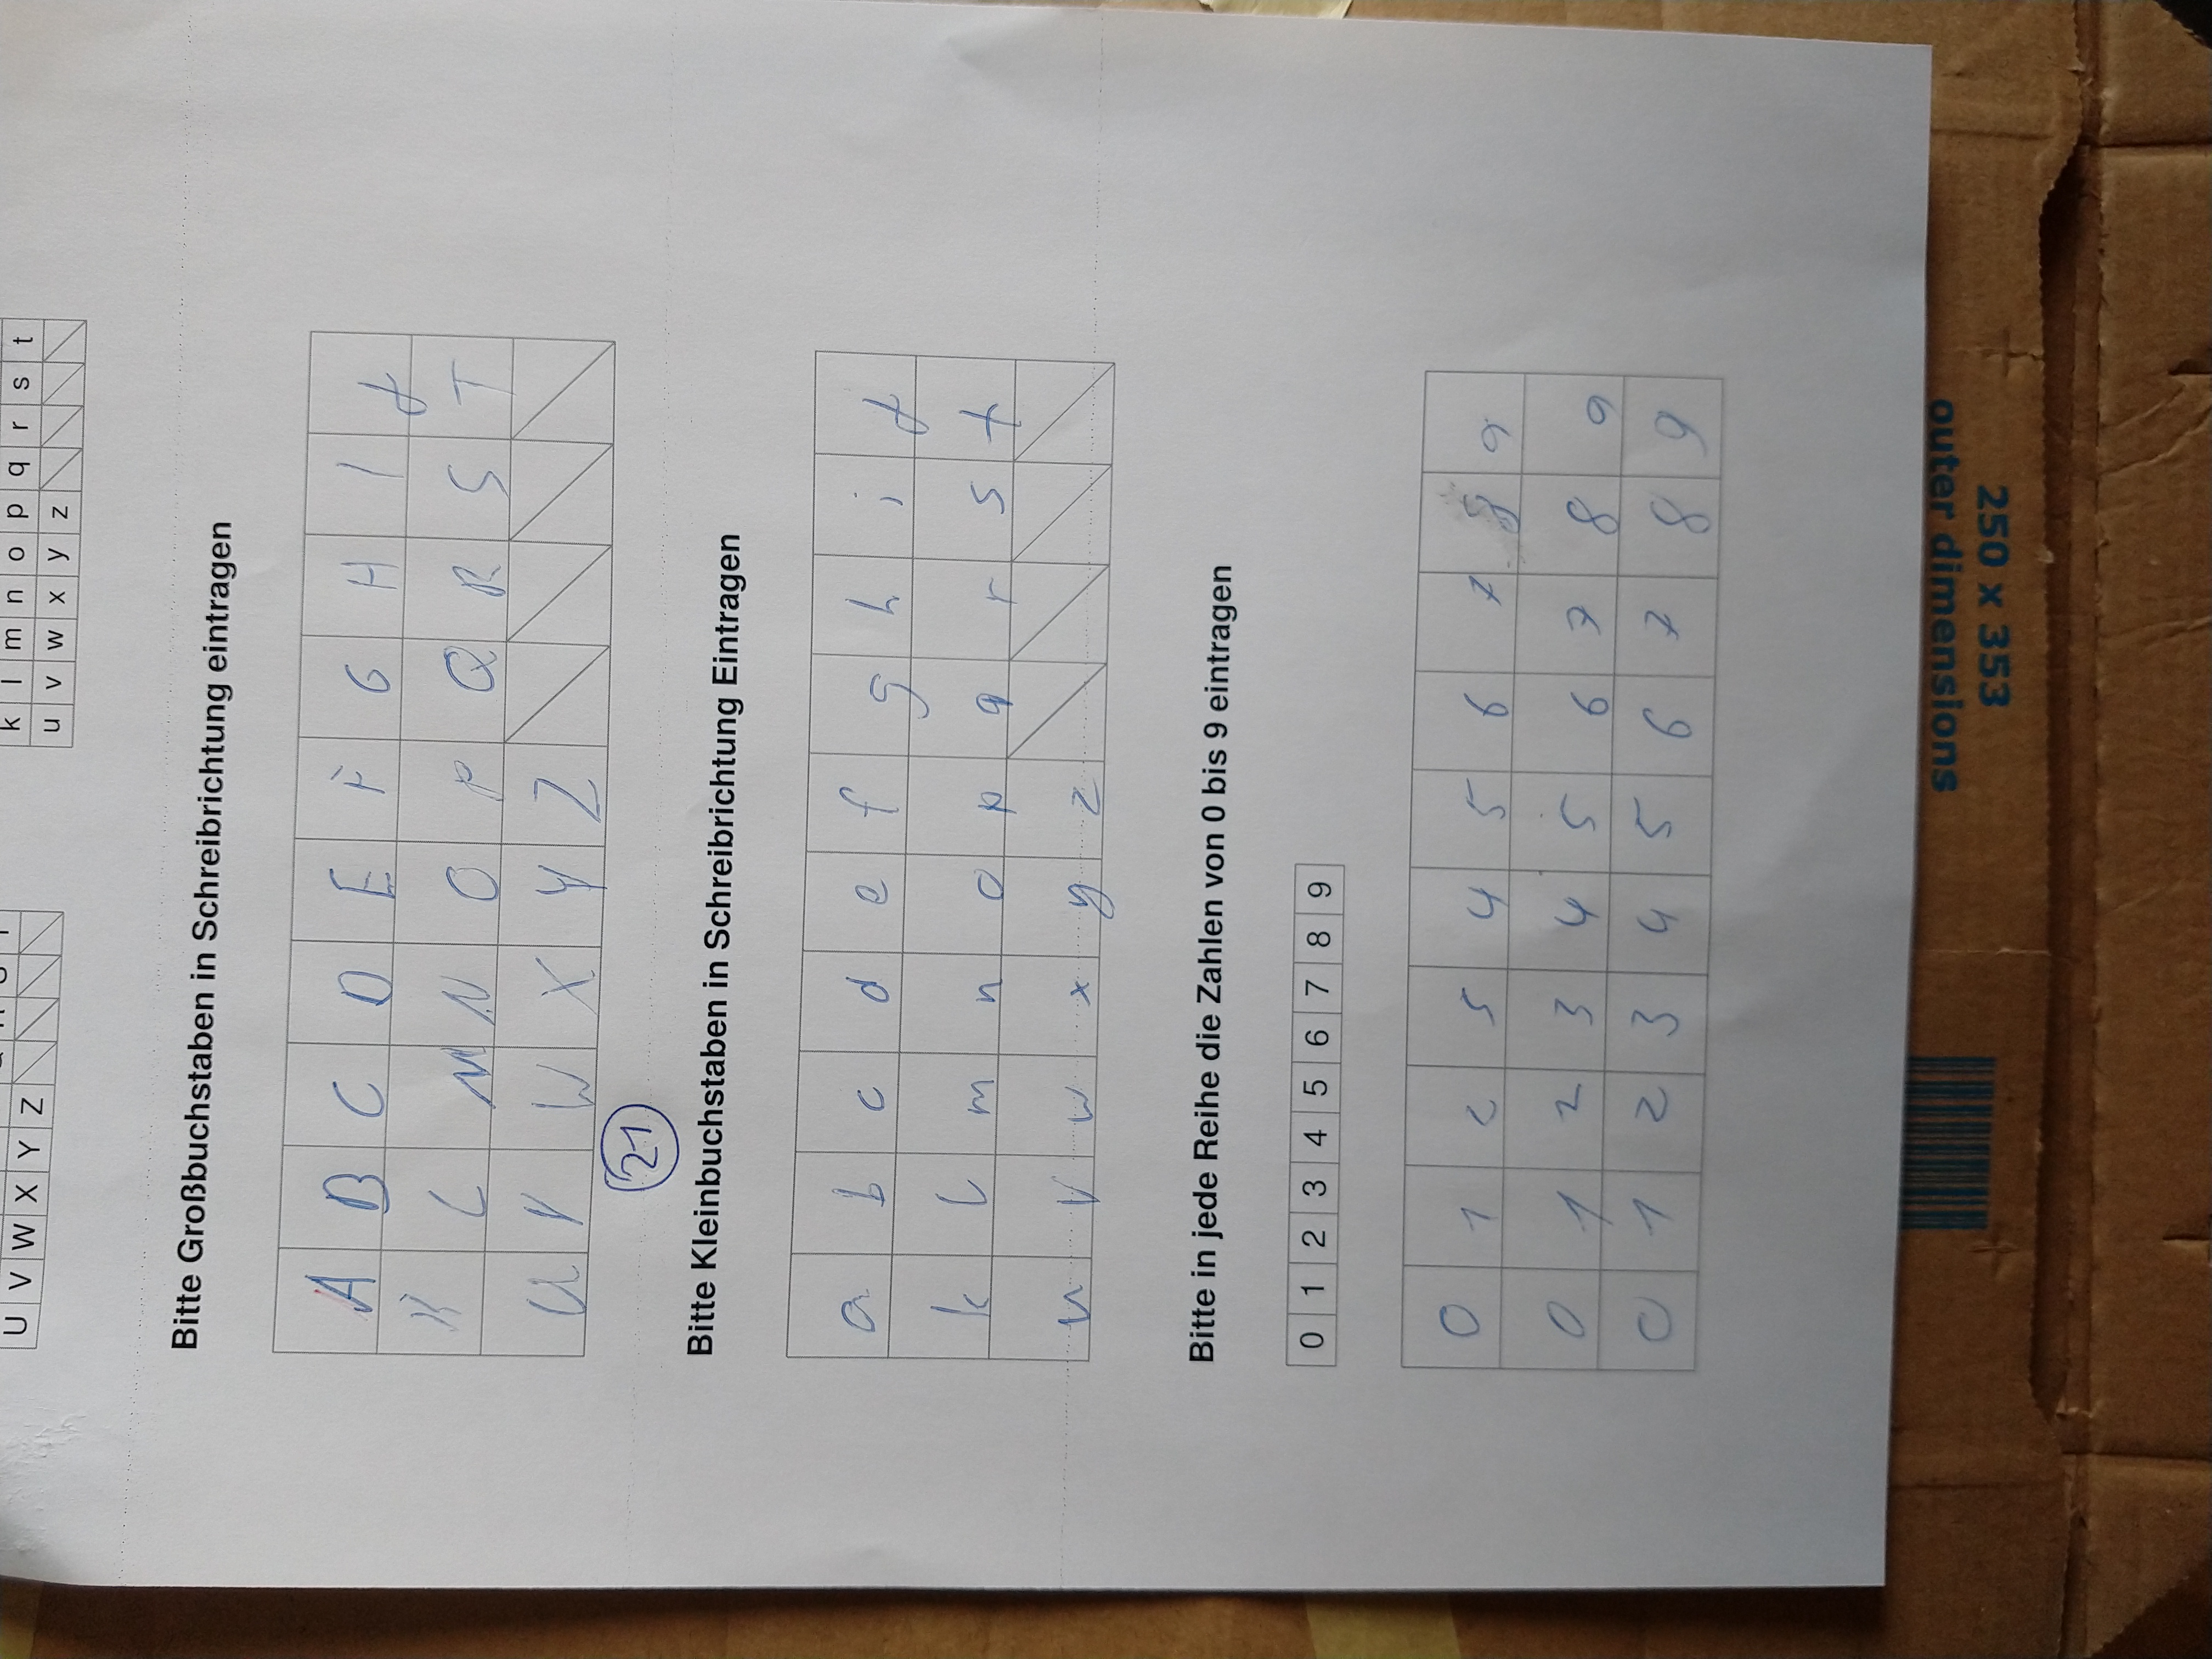 U V W X Y Z
k l m n o p q r s t
u v w x y z
Bitte Großbuchstaben in Schreibrichtung eintragen
A B C D E F G H I J
K L M N O P Q R S T
U V W X Y Z
21
Bitte Kleinbuchstaben in Schreibrichtung Eintragen
a b c d e f g h i j
k l m n o p q r s t
u v w x y z
Bitte in jede Reihe die Zahlen von 0 bis 9 eintragen
0 1 2 3 4 5 6 7 8 9
0 1 2 5 4 5 6 7 8 9
0 1 2 3 4 5 6 7 8 9
0 1 2 3 4 5 6 7 8 9
outer dimensions
250 x 353